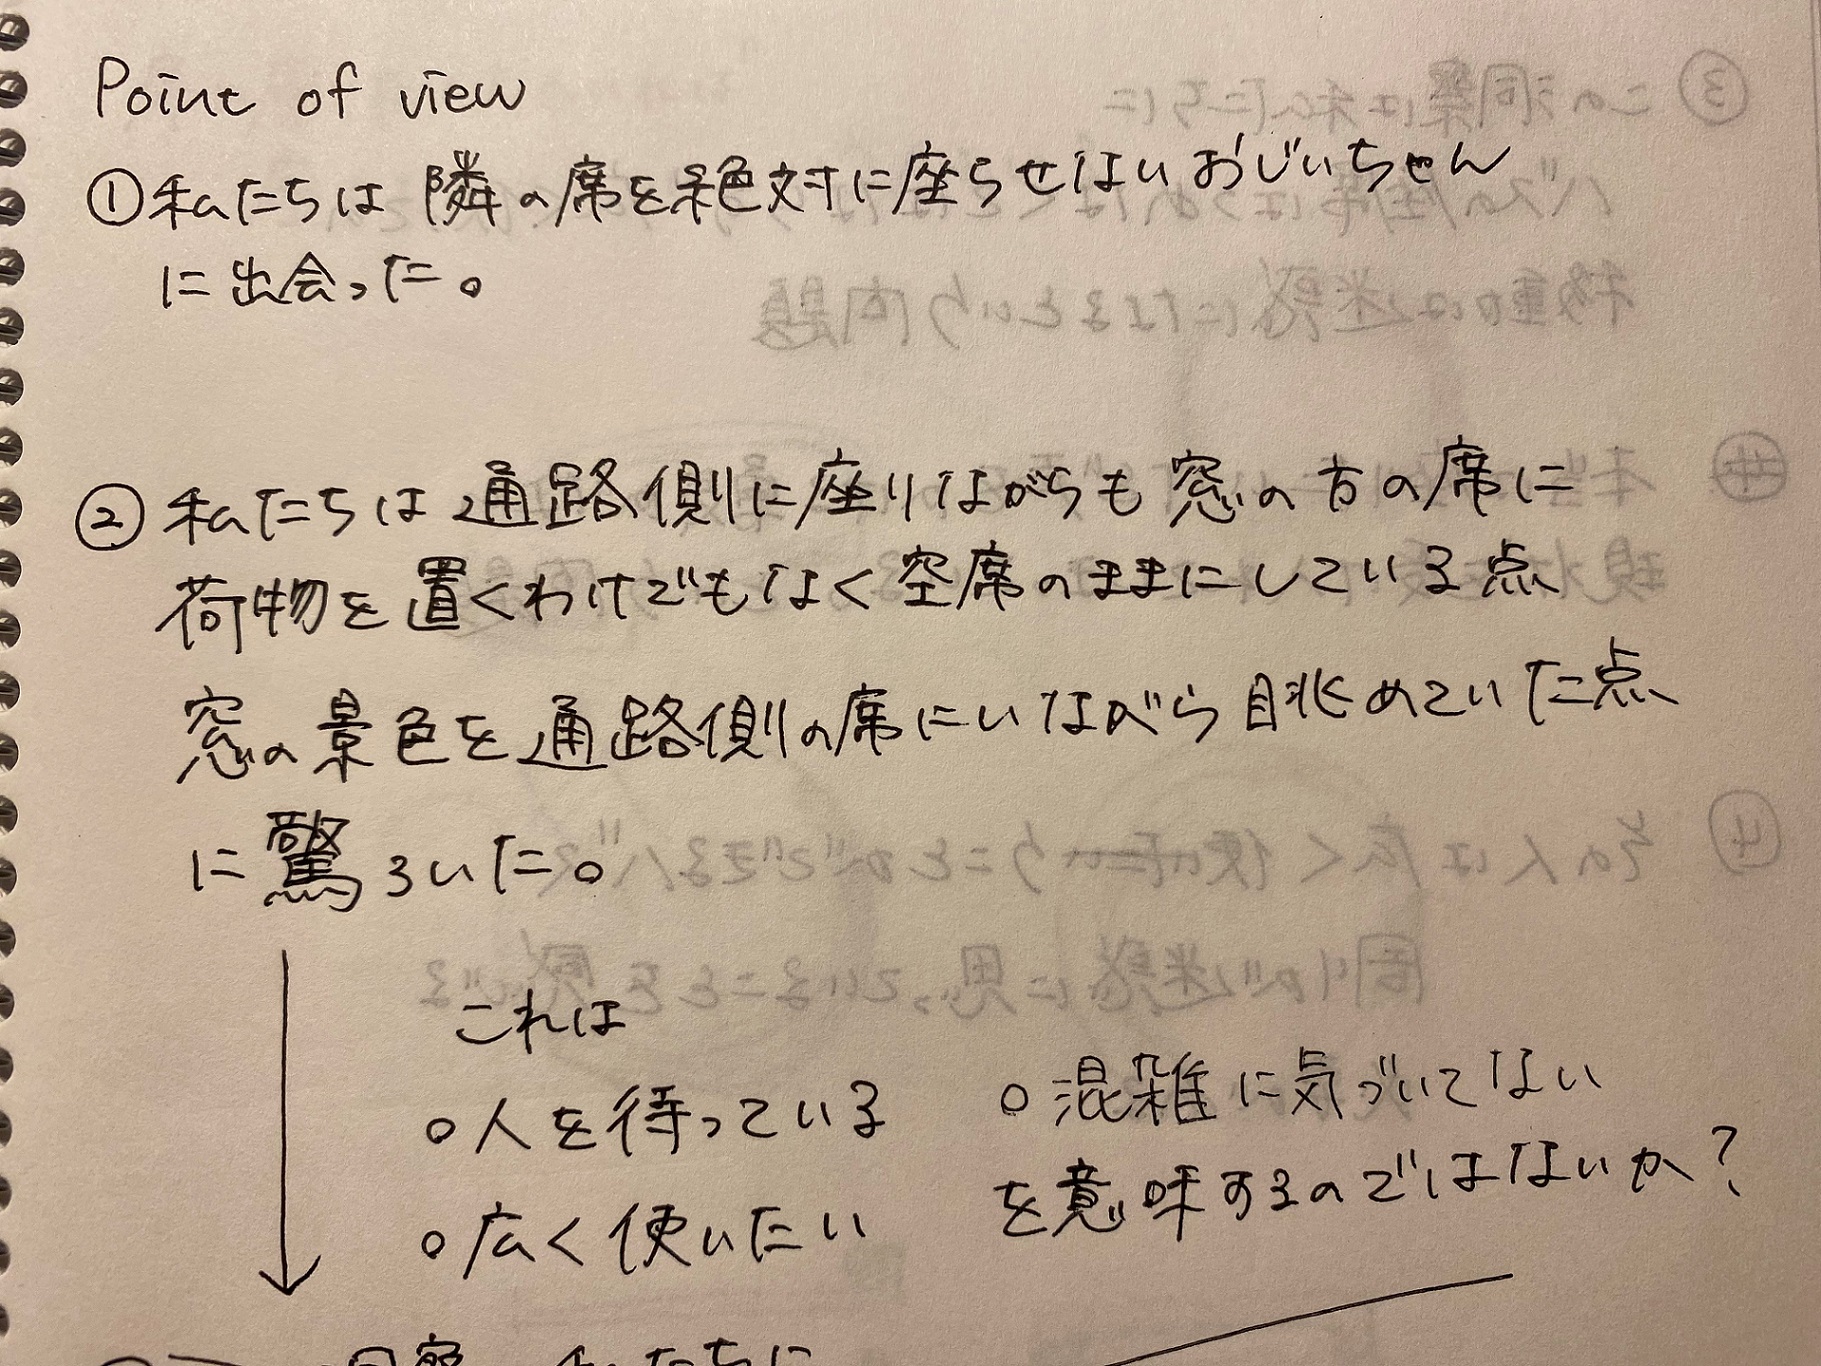 Point of view
①私たちは隣の席を絶対に座らせないおじいちゃん
に出会った。
②私たちは通路側に座りながらも窓の方の席に
荷物を置くわけでもなく空席のままにしている点
窓の景色を通路側の席にいながら眺めていた点
に驚ろいた。
これは
○人を待っている
○広く使いたい
○混雑に気づいてない
を意味するのではないか?
私たちに